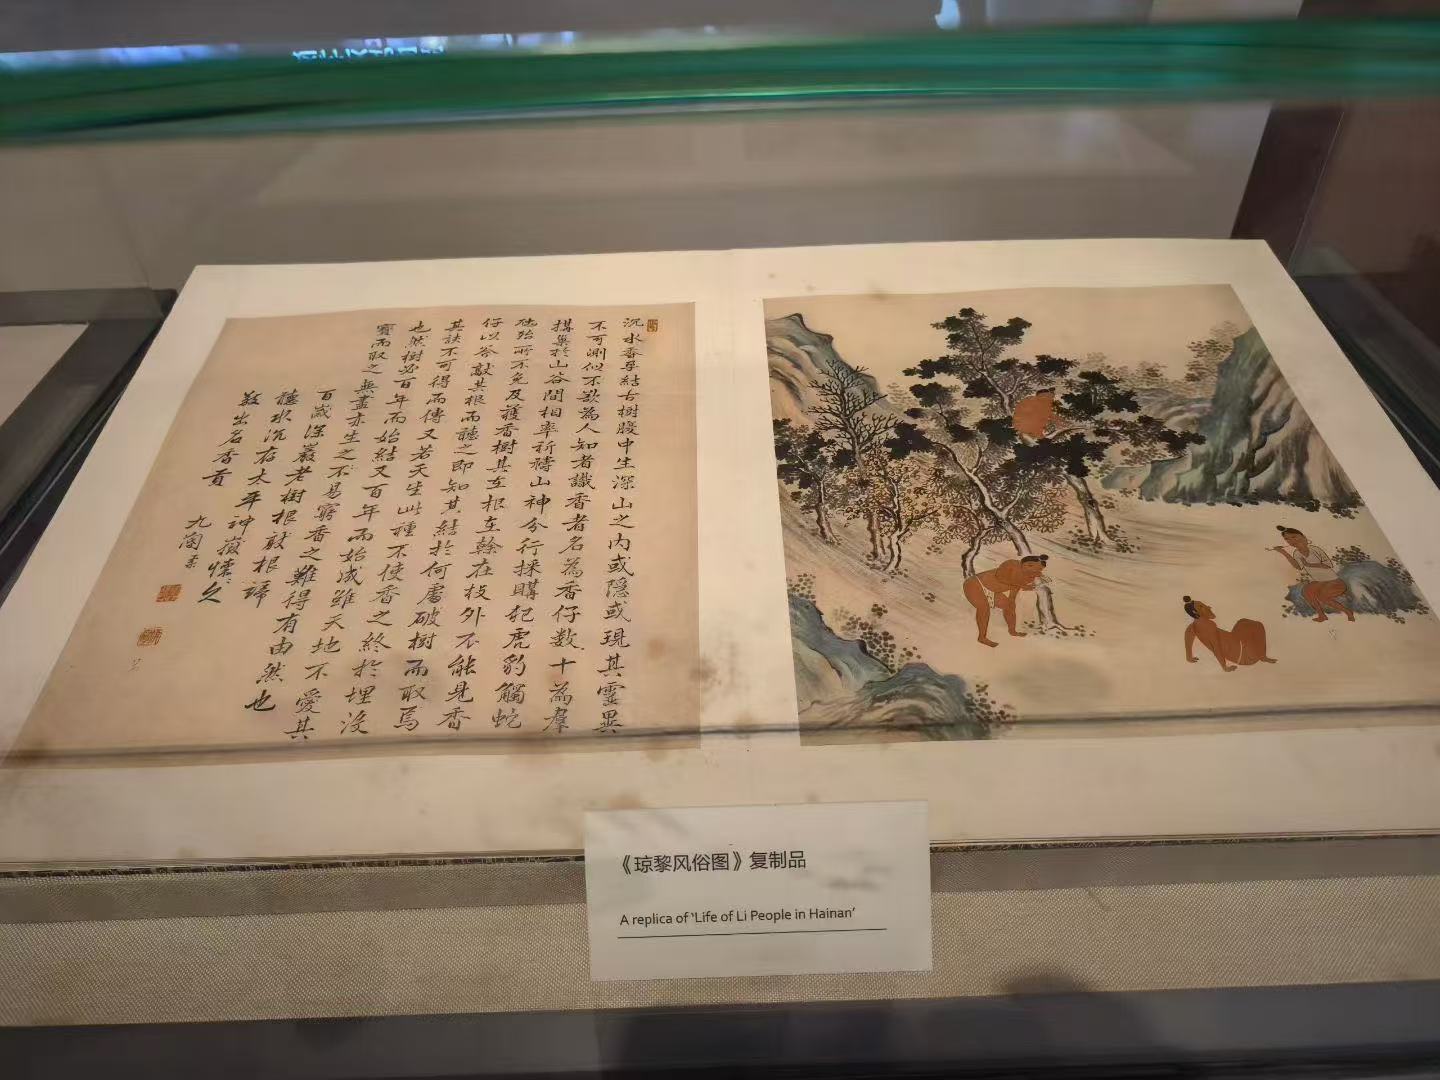 沉水香孕結古樹腹中生深山之内或隱或現其靈異
不可測似不欲為人知者識香者名為香仔數十為羣
構巢於山谷間相率祈禱山神分行採購犯虎豹觸蛇
所不免及獲香樹其在根在榦在枝外不能見香
仔以斧敲其根而聽之即知其結於何處破樹而取焉
其訣不可得而傳又若天生此種不使香之終於埋没
也然樹必百年而始結又百年而始成雖天地不愛其
寶而取之無盡亦生之不易窮香之難得有由然也
百歲深巖老樹根敲根諦
聽水沉存太平神嶽懷久
出名香貢
九
《琼黎风俗图》复制品
A replica of ‘Life of Li People in Hainan’